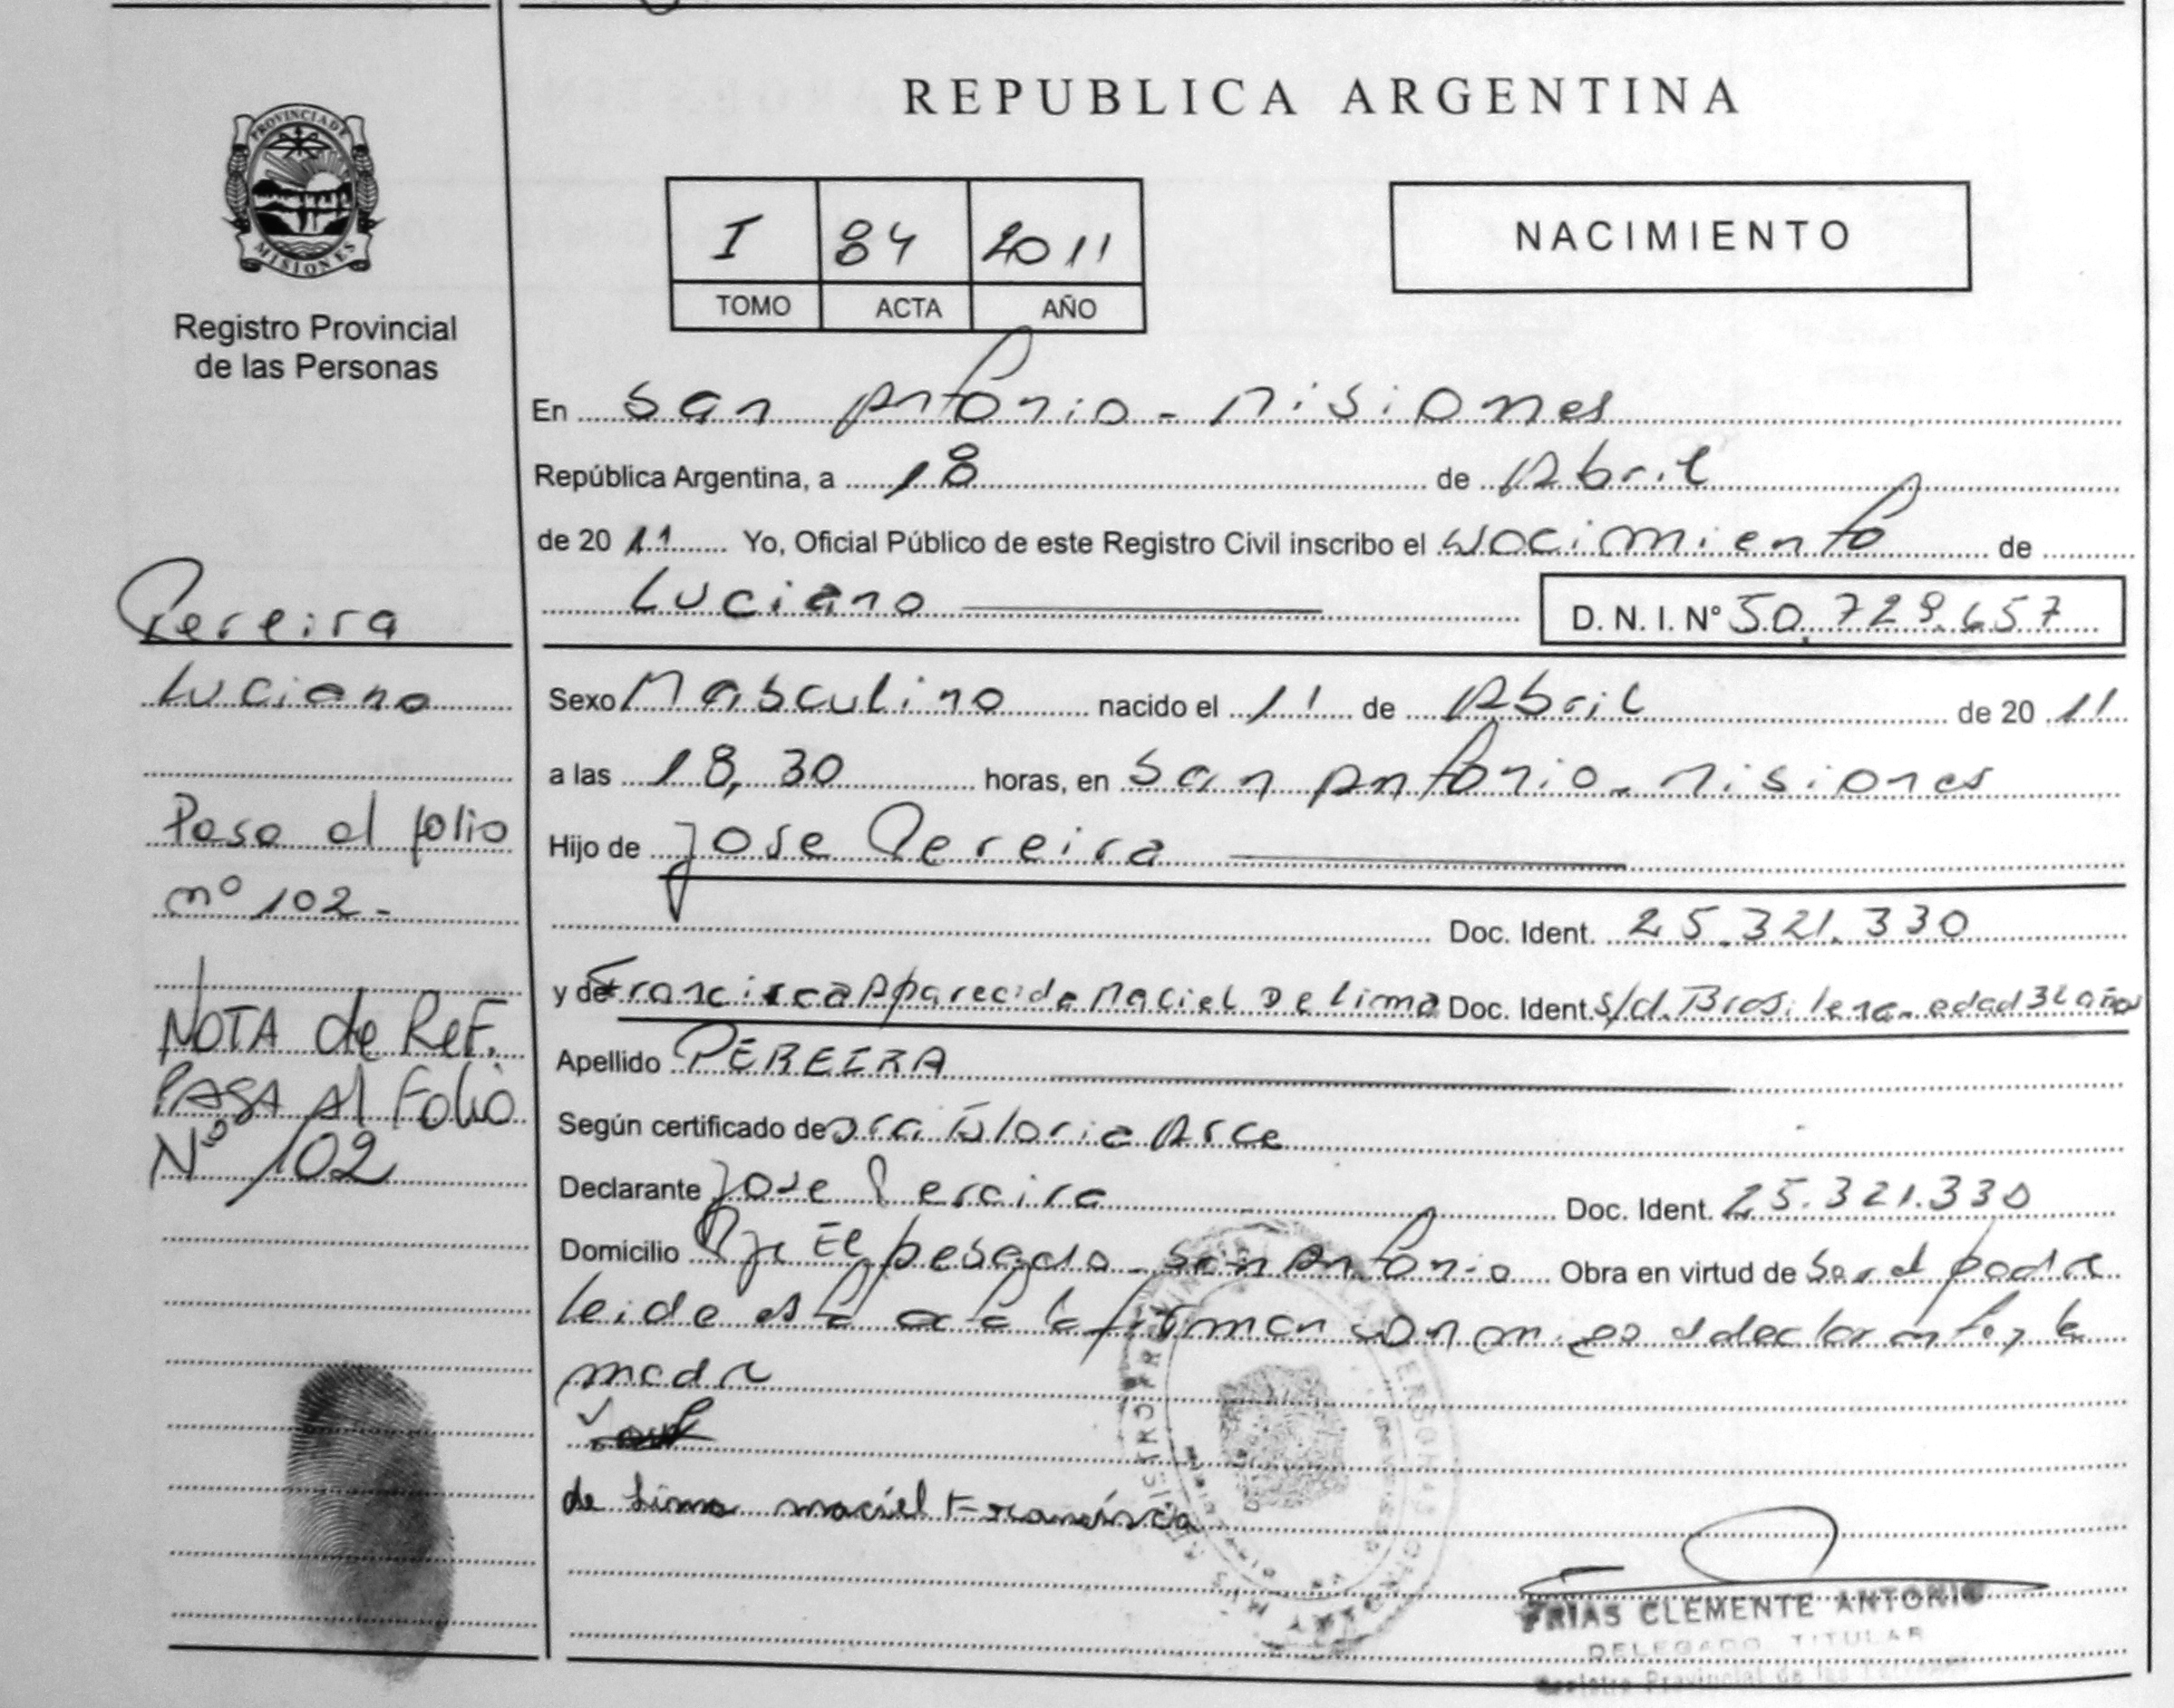 REPUBLICA ARGENTINA
PROVINCIA DE
MISIONES
Registro Provincial
de las Personas
I 84 2011
TOMO ACTA AÑO
NACIMIENTO
En San Antonio - Misiones
República Argentina, a 18 de Abril
de 20 11 Yo, Oficial Público de este Registro Civil inscribo el nacimiento de
Luciano
D. N. I. Nº 50.729.657
Pereira
Luciano
Paso al folio
nº 102.-
NOTA de ReF.
PASA Al Folio
Nº 102
Sexo Masculino nacido el 11 de Abril de 20 11
a las 18,30 horas, en San Antonio - Misiones
Hijo de Jose Pereira
Doc. Ident. 25.321.330
y de Francisca Aparecida Maciel De Lima Doc. Ident. s/d. Brasilena - edad 32 años
Apellido PEREIRA
Según certificado de Dra Gloria Arce
Declarante Jose Pereira Doc. Ident. 25.321.330
Domicilio Pje El pesado - San Antonio Obra en virtud de Ser el padre
leida esta acta la firman conmigo el declarante y la
madre
de Lima maciel Francisca
FRIAS CLEMENTE ANTONIO
DELEGADO TITULAR
Registro Provincial de las Personas